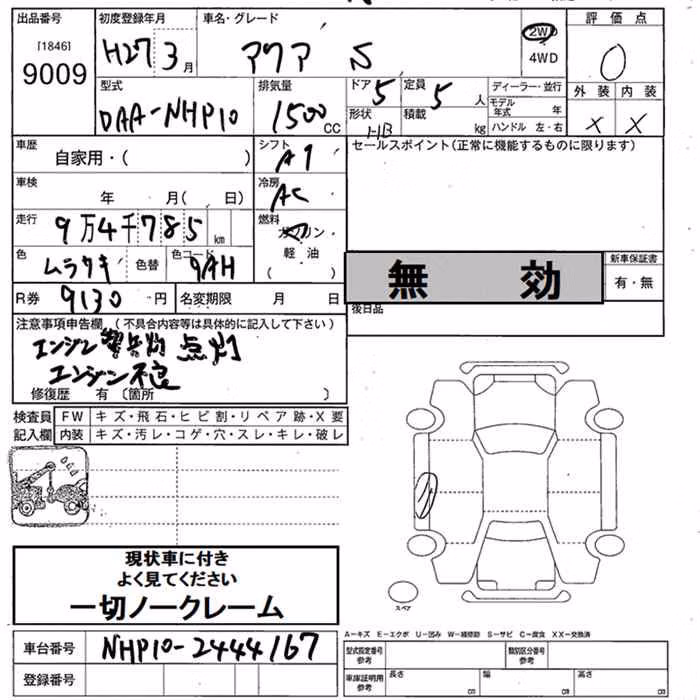 出品番号 初度登録年月 車名・グレード 評価点
[1846]
9009
H27 3月 アクア S 2WD 4WD 0
外装 内装
X X
型式 排気量 ドア 定員 ディーラー・並行
DAA-NHP10 1500 CC 5 5人 モデル年式 年
形状 HB 積載 kg ハンドル 左・右
車歴 自家用・( ) シフト AT セールスポイント(正常に機能するものに限ります)
車検 年 月( 日) 冷房 AC
走行 9万4千785km 燃料 ガソリン
軽油
( )
色 ムラサキ 色替 色コード 9AH
無効
新車保証書
有・無
R券 9130円 名変期限 月 日
後日品
注意事項申告欄 (不具合内容等は具体的に記入して下さい)
エンジン警告灯 点灯
エンジン不良
修復歴 有 〔箇所 〕
検査員 FW キズ・飛石・ヒビ割・リペア跡・X要
記入欄 内装 キズ・汚レ・コゲ・穴・スレ・キレ・破レ
現状車に付き
よく見てください
一切ノークレーム
スペア
車台番号 NHP10-2444167
登録番号
A-キズ E-エクボ U-凹み W-補修跡 S-サビ C-腐食 XX-交換済
型式指定番号 参考 類別区分番号 参考
車庫証明用 参考 長さ cm 幅 cm 高さ cm